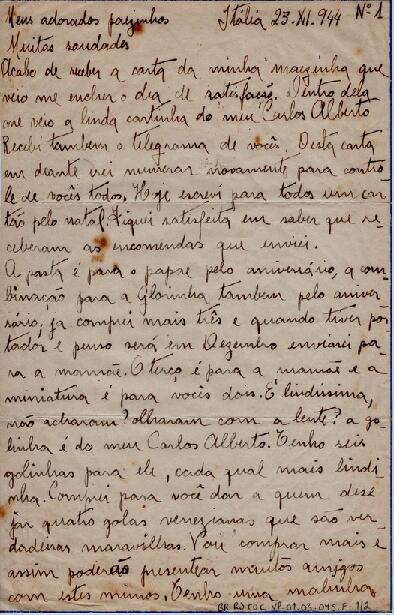 Meus adorados paizinhos Itália 23.XI.944 Nº 1
Muitas saudades
Acabo de receber a carta da minha mãezinha que
veio me encher o dia de satisfação. Dentro dela
me veio a linda cartinha do meu Carlos Alberto
Recebi tambem o telegrama de vocês. Desta carta
em deante irei numerar novamente para contro-
le de vocês todos. Hoje escrevi para todos um car-
tão pelo natal. Fiquei satisfeita em saber que re-
ceberam as encomendas que enviei.
A pasta é para o papae pelo aniversário, a com-
binação para a Glorinha tambem pelo aniver-
sário, já comprei mais três e quando tiver por-
tador, e penso será em Dezembro enviarei pa-
ra a mamãe. O terço é para a mamãe e a
miniatura é para vocês dois. É lindissima,
não acharam? olharam com a lente? a go-
linha é do meu Carlos Alberto. Tenho seis
golinhas para ele, cada qual mais lindi-
nha. Comprei para você dar a quem dese-
jar quatro golas venezianas que são ver-
dadeiras maravilhas. Vou comprar mais e
assim poderão presentear muitos amigos
com estes mimos. Tenho uma malinha
BR RJ COC VP.01.03.045.F 1/2